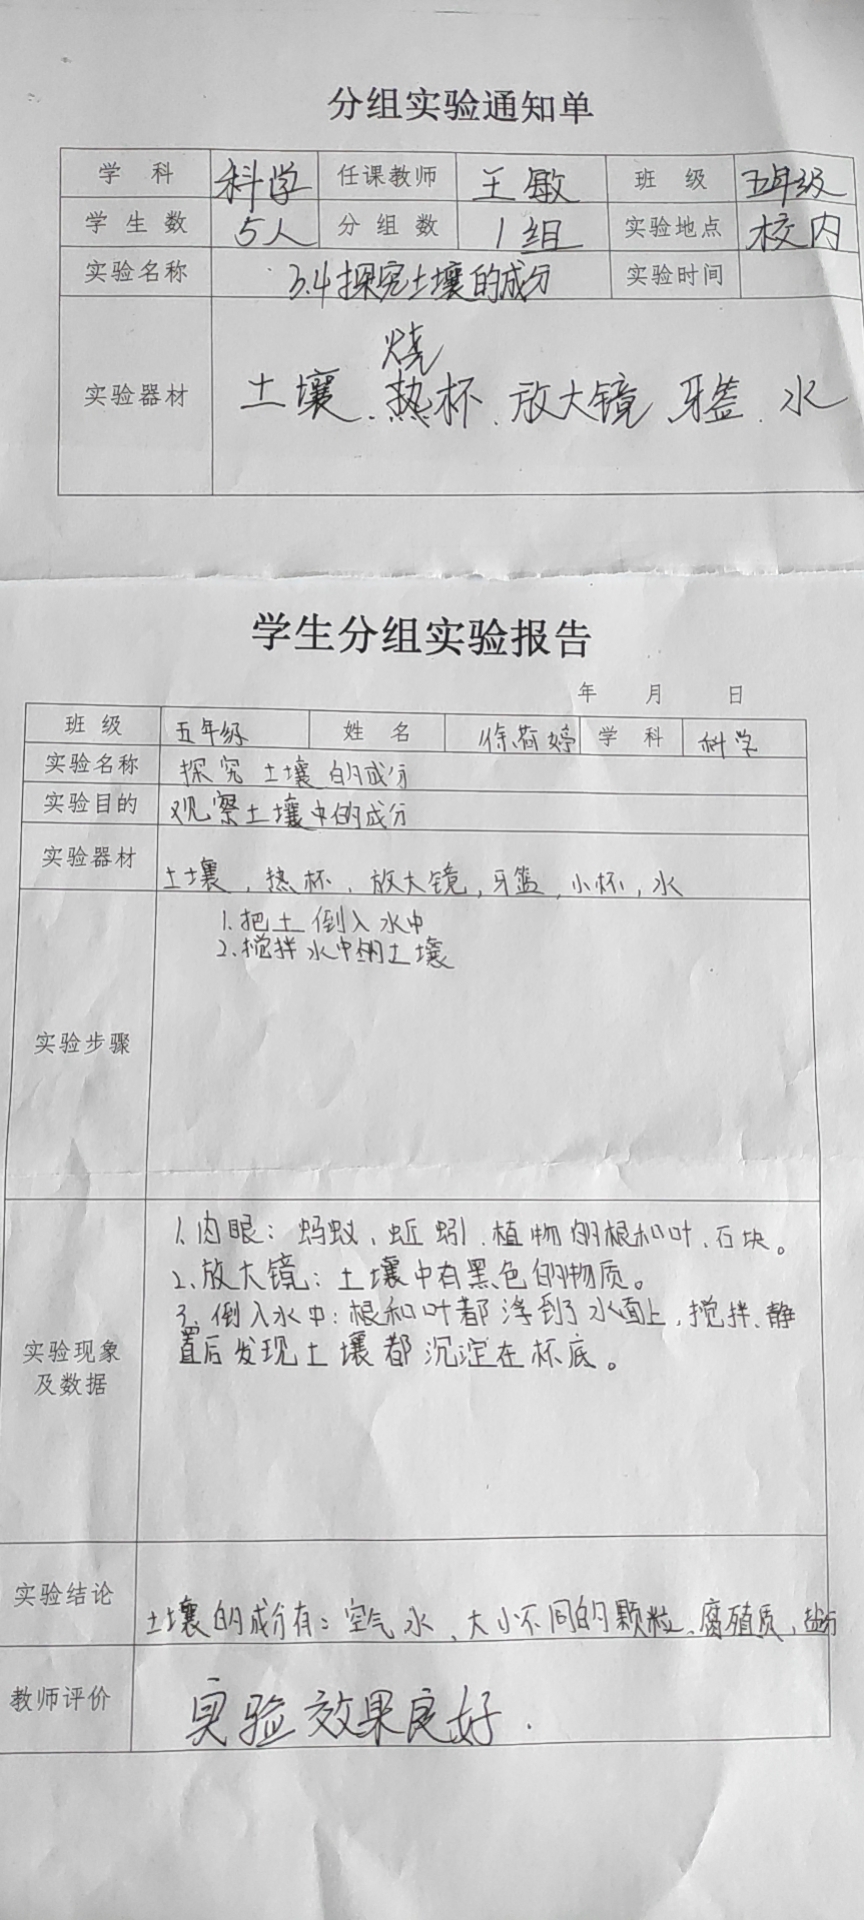 分组实验通知单
学科 科学 任课教师 王敏 班级 五年级
学生数 5人 分组数 1组 实验地点 校内
实验名称 3.4探究土壤的成分 实验时间
烧
实验器材 土壤、热杯、放大镜、牙签、水
学生分组实验报告
年 月 日
班级 五年级 姓名 徐荷婷 学科 科学
实验名称 探究土壤的成分
实验目的 观察土壤中的成分
实验器材 土壤,热杯,放大镜,牙签,小杯,水
1.把土倒入水中
2.搅拌水中的土壤
实验步骤
1.肉眼:蚂蚁、蚯蚓、植物的根和叶、石块。
2.放大镜:土壤中有黑色的物质。
3.倒入水中:根和叶都浮到了水面上,搅拌、静
置后发现土壤都沉淀在杯底。
实验现象
及数据
实验结论 土壤的成分有:空气水、大小不同的颗粒、腐殖质,盐分
教师评价 实验效果良好.